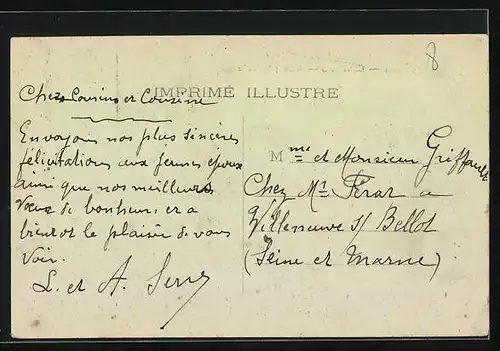 8
IMPRIMÉ ILLUSTRÉ
Chers Cousins et Cousine
Envoyons nos plus sincères
félicitations aux jeunes époux
ainsi que nos meilleurs
Vœux de bonheur et a
bientot le plaisir de vous
voir.
L. et A. Serre
Mme et Monsieur Griffault
Chez Mr Ferar a
Villeneuve s/ Bellot
(Seine et Marne)